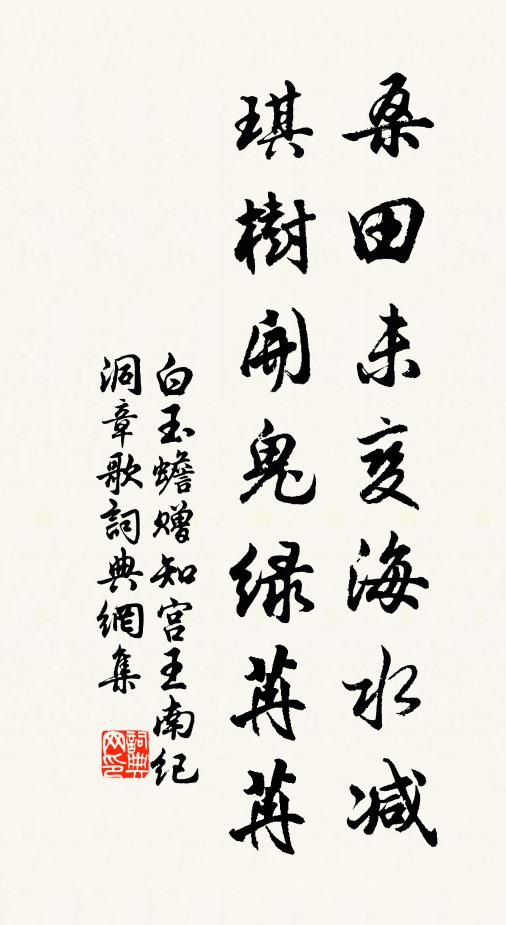 桑田未变海水减
琪樹開鬼绿苒苒
白玉蟾赠知宫王南纪
洞章歌詞典網集
詞典网印